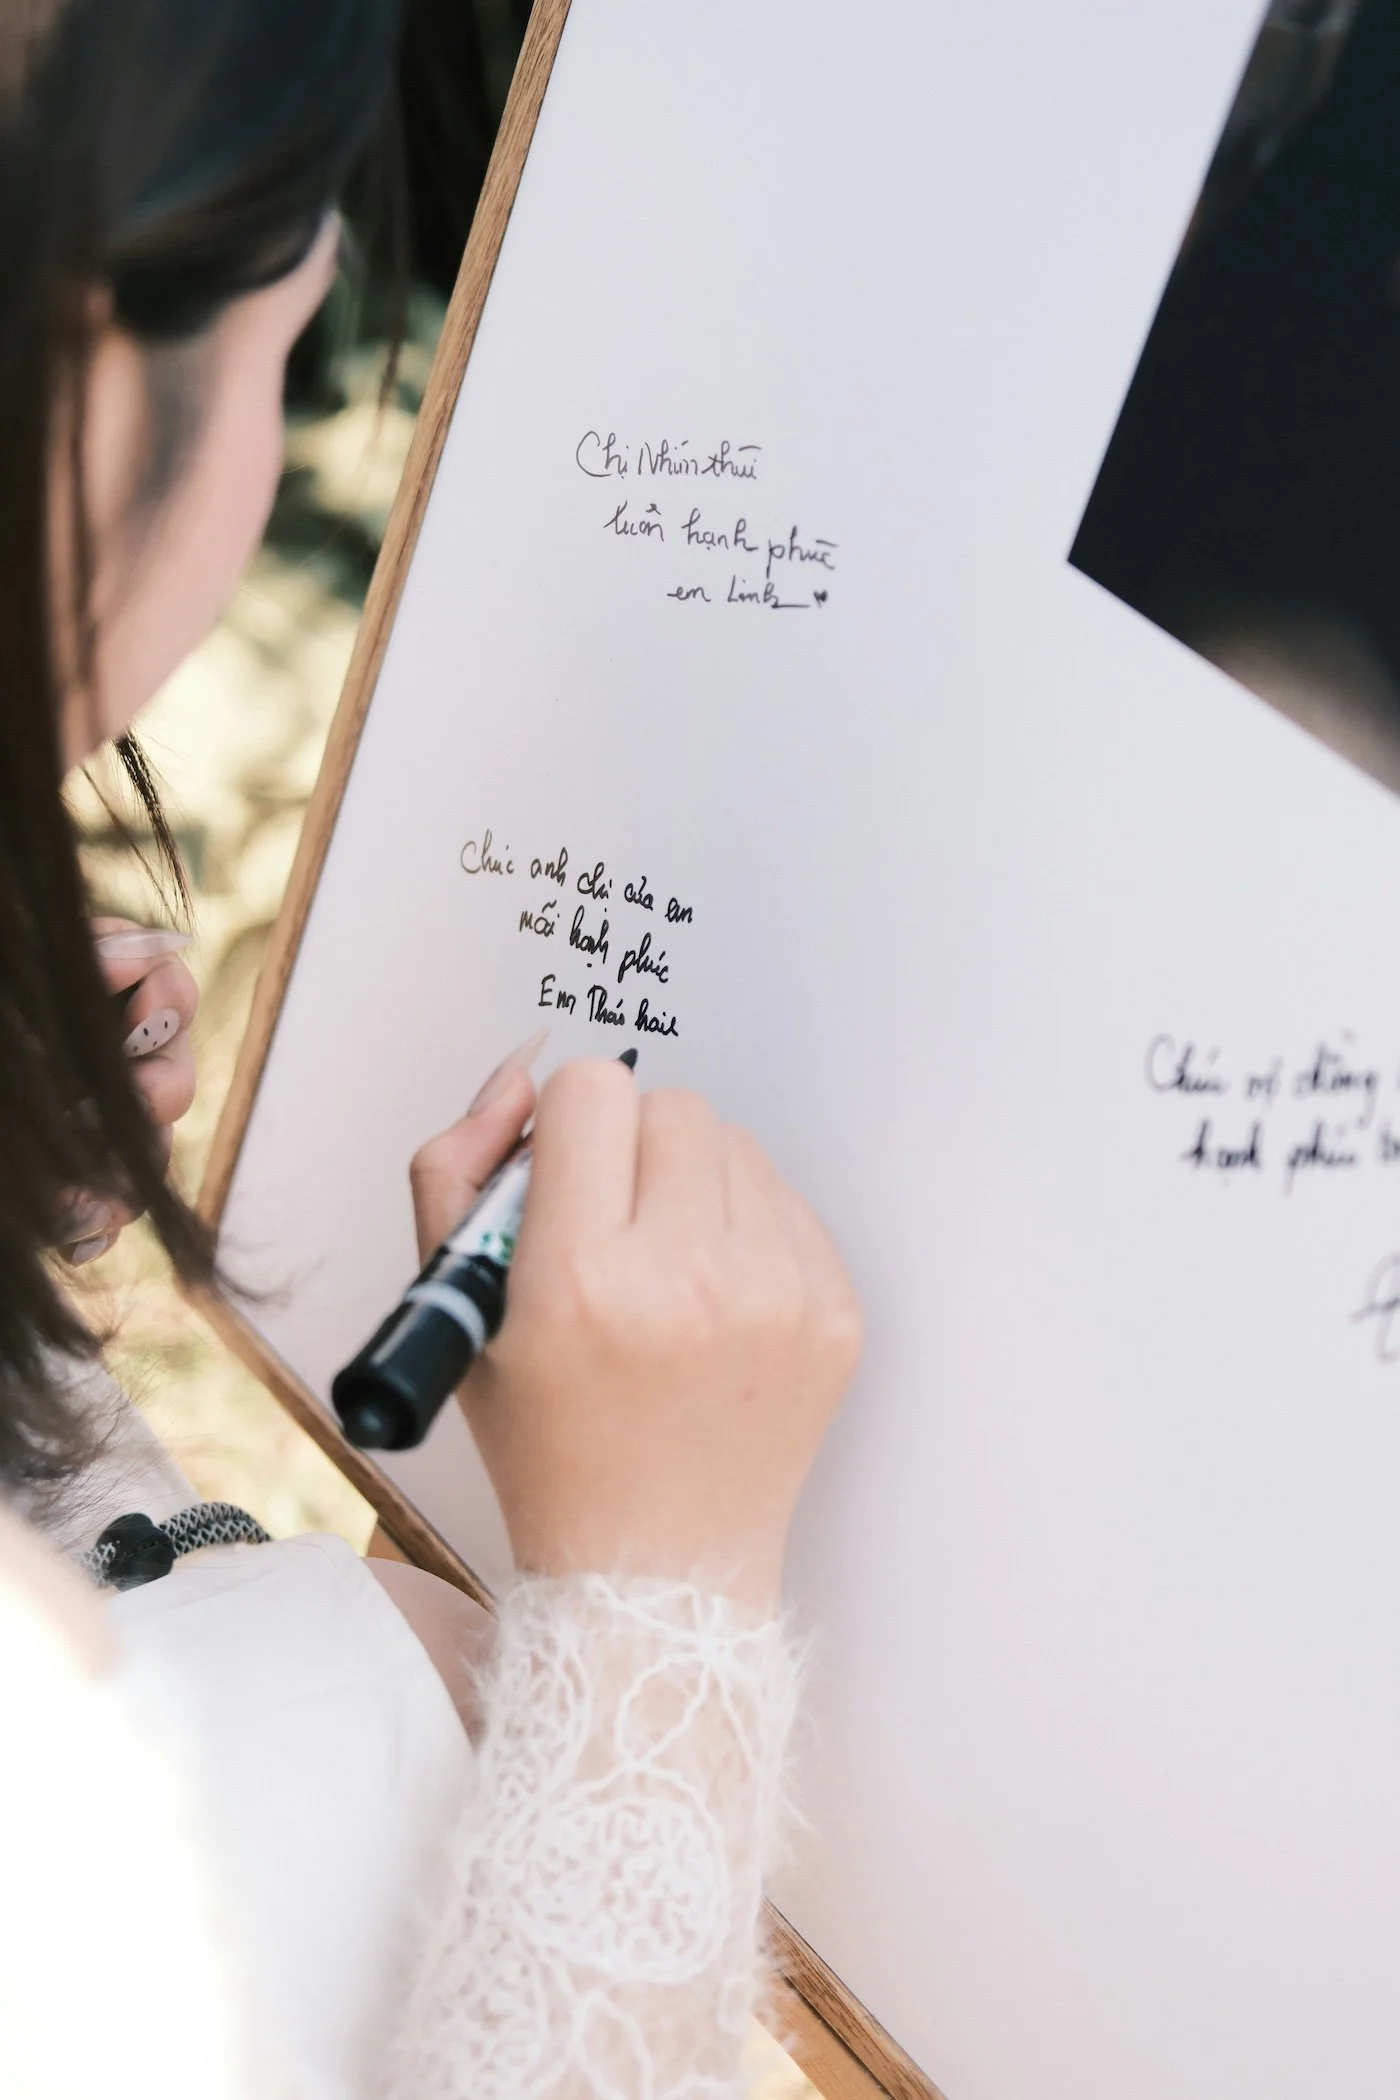 Chị Nhún thúi
luôn hạnh phúc
em Linh
Chúc anh chị của em
mãi hạnh phúc
Em Thảo
Chúc vợ chồng
hạnh phúc